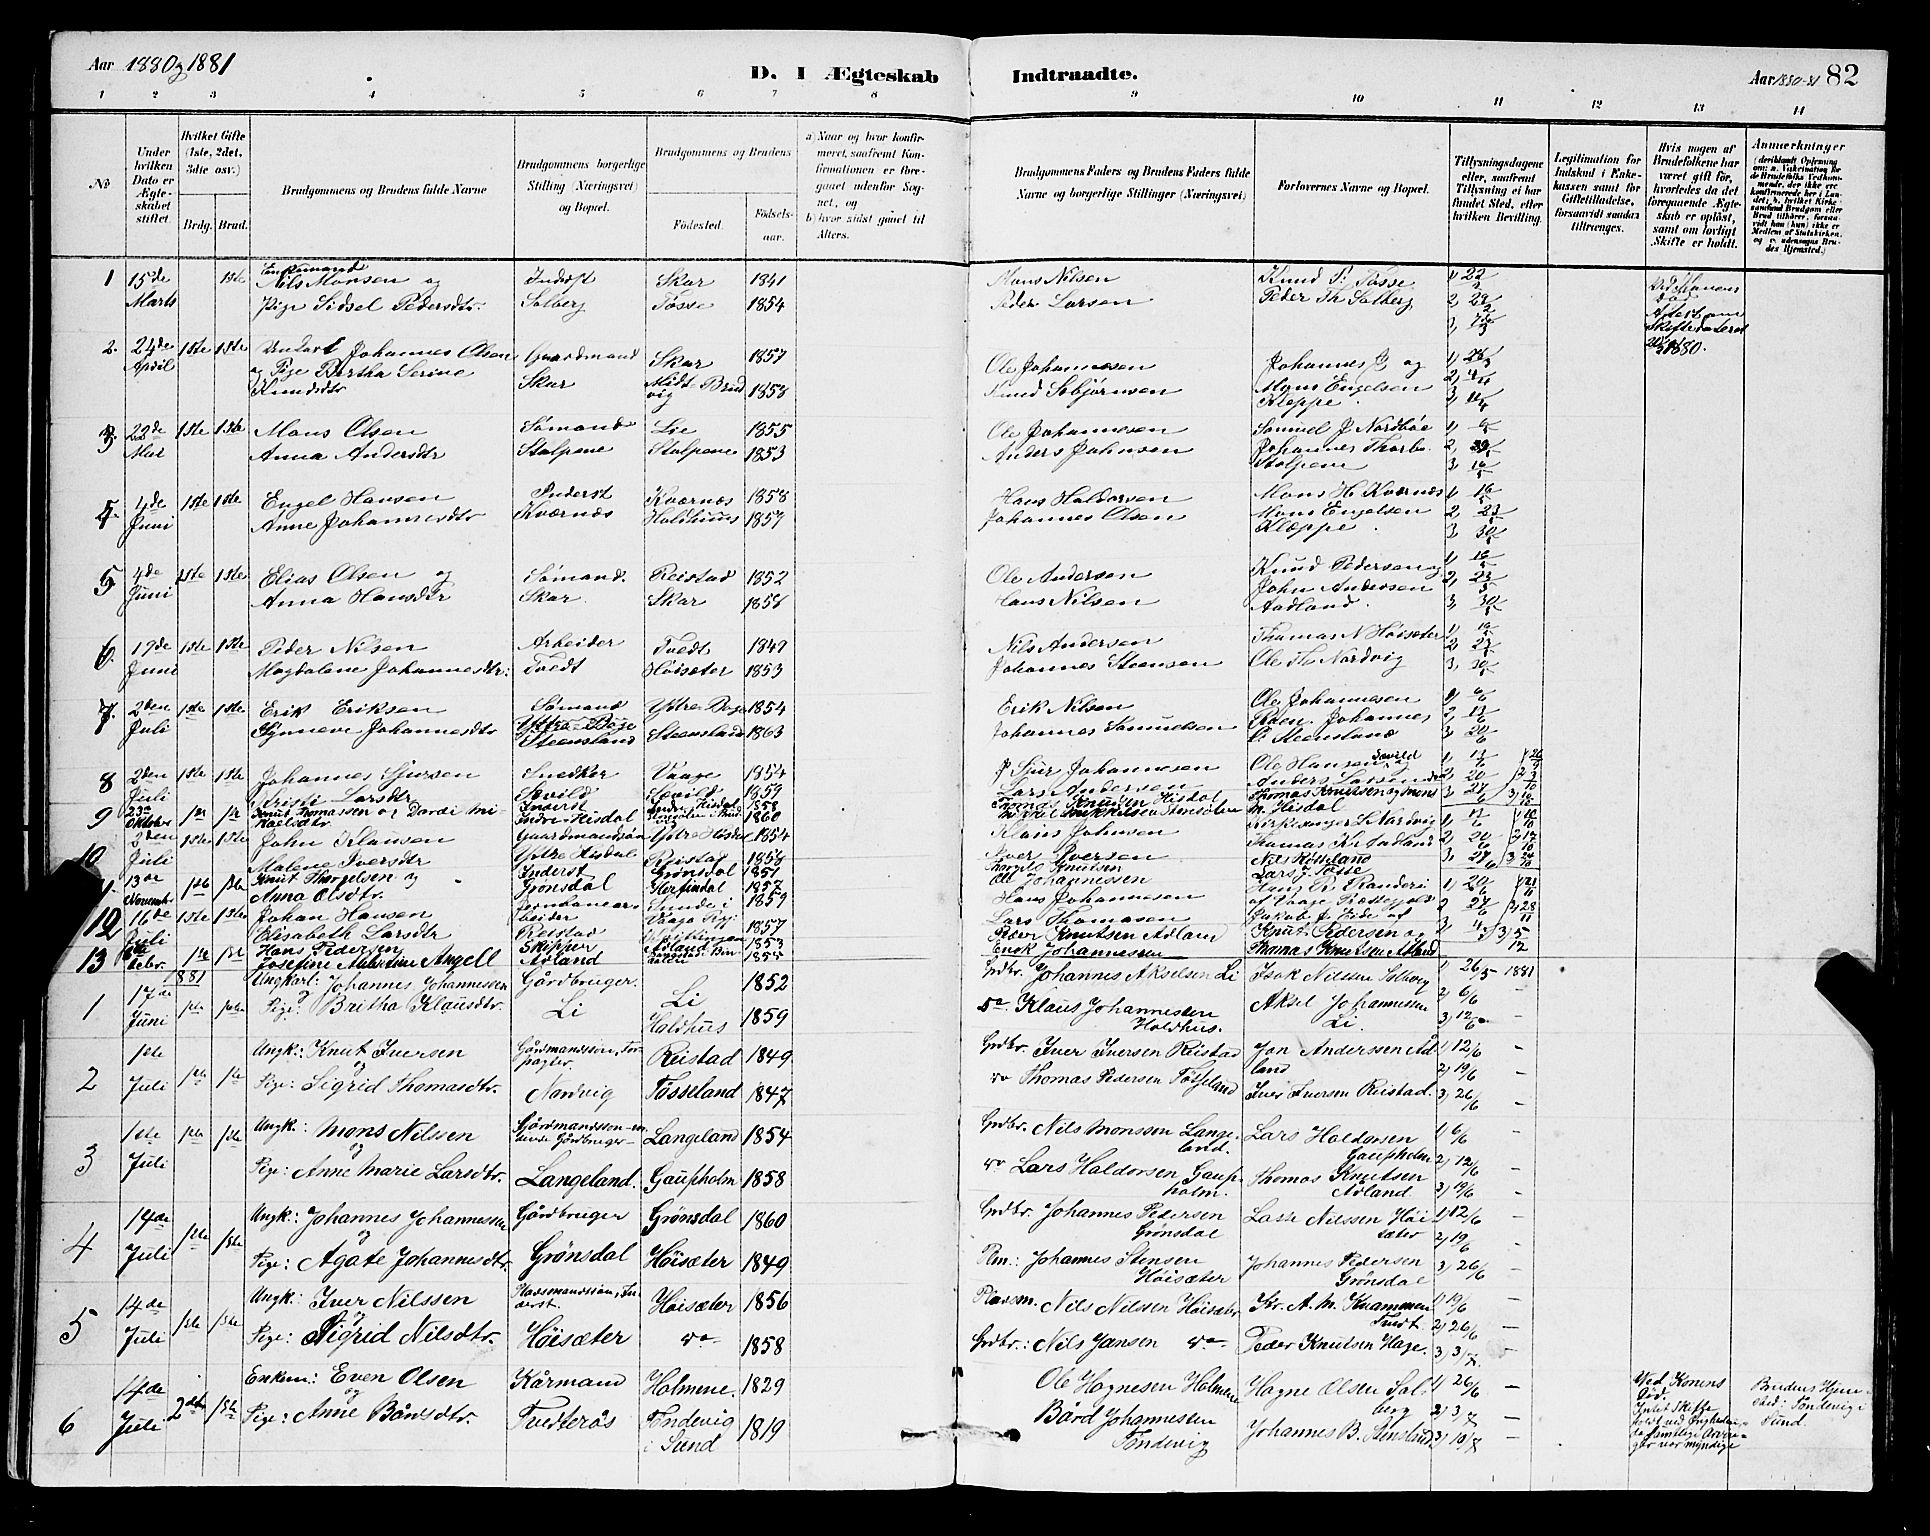 Aar 1880 og 1881
D. I Ægteskab Indtraadte.
Aar 1880-81 82
1 2 3 4 5 6 7 8 9 10 11 12 13 14
No
Under hvilken Dato er Ægteskabet stiftet
Hvilket Gifte (1ste, 2det, 3die osv.)
Brdg. Brud.
Brudgommens og Brudens fulde Navne
Brudgommens borgerlige Stilling (Næringsvei) og Bopæl.
Brudgommens og Brudens
Fødested. Fødselsaar.
a) Naar og hvor konfirmeret, saafremt Konfirmationen er foregaaet udenfor Sognet, og
b) hvor sidst gaaet til Alters.
Brudgommens Faders og Brudens Faders fulde Navne og borgerlige Stillinger (Næringsvei)
Forlovernes Navne og Bopæl.
Tillysningsdagene eller, saafremt Tillysning ei har fundet Sted, efter hvilken Bevilling.
Legitimation for Indskud i Enkekassen samt for Giftetilladelse, forsaavidt saadan tiltrænges.
Hvis nogen af Brudefolkene har været gift før, hvorledes da det foregaaende Ægteskab er opløst, samt om lovligt Skifte er holdt.
Anmerkninger
1 15de 1ste Enkemand Nils Monsen og Inderst Skar 1841 Mons Nilsen Knud P. Tøsse 1) 22/2
Marts Pige Sidsel Pedersdtr. Solberg Tøsse 1854 Peder Larsen Peder Th. Solberg 2) 29/2
3) 7de/3
1880.
2. 24de 1ste 1ste Ungkarl Johannes Olsen Gaardmand Skar 1857 Ole Johannesen Johannes J. og 1) 28/3
April og Pige Bertha Serine Skar Midt Brudvig 1858 Knud Sebjørnsen Mons Engelsen 2) 4/4
Knudsdtr Kleppe. 3) 11/4
3. 22de 1ste 1ste Mons Olsen Sømand Lie 1855 Ole Johannesen Samuel J. Nordbøe
Mai Anna Andersdtr Stolpene Stolpene 1853 Anders Johnsen Johannes Thorbs.
Stolpene 3) 16/5
4. 4de 1ste 1ste Engel Hansen Inderst Kvernæs 1858 Hans Haldorsen Mons H. Kvernæs 1) 16/5
Juni Anne Johannesdtr Kvernæs Holdhuus 1857 Johannes Olsen Mons Engelsen 2) 23/5
Kleppe. 3) 30/5
5 4de 1ste 1ste Elias Olsen og Sømand. Reistad 1852 Ole Andersen Knud Pedersen og 1) 16/5
Juni Anna Hansdtr Skar. Skar 1856 Hans Nilsen John Andersen 2) 23/5
Aadland. 3) 30/5
6. 19de 1ste 1ste Peder Nilsen Arbeider Tvedt 1849 Nils Andersen Thomas N. Høisæter 1) 16/5
Juni Magdalene Johannesdtr: Tvedt Høisæter 1853 Johannes Steensen Ole Th. Nordvig 2) 23/5
3) 30/5
7. 2den 1ste 1ste Erik Eriksen Sømand Ystre Bøge 1854 Erik Nilsen Ole Johannesen 1) 6/6
Juli Synneve Johannesdtr Ystre Bøge Steensland Steensland 1863 Johannes Samuelsen Røen. Johannes 2) 13/6
O. Steensland 3) 20/6
8 2den 1ste 1ste Johannes Sjursen Snedker Vaage 1854 Sjur Johannesen Ole Hansen Sævild 1) 13/6
Juli Kristi Larsdtr Sævild Sævild 1859 Lars Andersen Anders Larsen 2) 20/6
9 23de Oktober 1ste 1ste Knut Thomassen og Dordi Mikkelsdtr. Inderst Indre Hisdal Indre Hisdal 1858 1860 Thomas Knudsen Hisdal Thomas Knutsen og Mons M. Hisdal 3) 27/6
10 2den 1ste 1ste John Klausen Gaardmandssøn Ystre Hisdal 1854 Klaus Johnsen Kirkesanger L. Nordvig 1)
Juli Malene Iversdtr Ystre Hisdal Reistad 1858 Iver Iversen Thomas Kn. Aadland 2) 20/6
11 13de November 1ste 1ste Knut Thorgelsen og Anna Olsdtr. Inderst Grønsdal Grønsdal Herfindal 1851 1857 Thorgils Knutsen Ole Johannessen Nils Røsseland Lars J. Tøsse 3) 27/6
12 16de 1ste 1ste Johan Hansen Jernbanearbeider Sunde i 1859 Hans Johannesen 1) 20/6
Juli Elisabeth Larsdtr Reistad 1857 Lars Thomasen 2) 27/6
13 1ste 1ste Hans Pedersen Josefine Albertine Angell Skipper Adland Adland 1853 1855 Peder Knutsen Adland Enok Johannessen Knut Pedersen og Thomas Knutsen Adland
1881
1 17de Juni 1ste 1ste Ungkarl: Johannes Johannessen Gårdbruger. Li 1852 Grdbr. Johannes Akselsen Li Isak Nilssen Solberg 1) 26/5 1881
og Pige: Britha Klausdtr. Li Holdhus 1859 do Klaus Johannessen Holdhus. Aksel Johannessen Li. 2) 6/6 –
3) 12/6 –
2 1ste Juli 1ste 1ste Ungk.: Knut Iversen Gårdmandssøn, Forpagter. Reistad 1849 Grdbr. Iver Iversen Reistad Jon Anderssen Adland 1) 12/6 –
og Pige: Sigrid Thomasdtr. Nordvig Tøsseland 1847 do Thomas Pedersen Tøsseland Iver Iversen Reistad. 2) 19/6
3) 26/6 –
3 1ste Juli 1ste 1ste Ungk.: Mons Nilssen Langeland 1854 Grdbr. Nils Monssen Langeland. Lars Haldorsen Gaupholm 1) 6/6 –
og Pige: Anne Marie Larsdtr. Langeland. Gaupholm 1858 do Lars Haldorsen Gaupholm. Thomas Knutsen Adland 2) 12/6 –
3) 19/6 –
4 14de Juli 1ste 1ste Ungk.: Johannes Johannessen Gårdbruger Grønsdal 1860 Grdbr. Johannes Pedersen Grønsdal Lasse Nilssen Høisæter 1) 12/6 –
og Pige: Agate Johannesdtr. Grønsdal Høisæter 1849 Plm.: Johannes Stensen Høisæter Johannes Pedersen Grønsdal 2) 19/6
3) 26/6 –
5 14de Juli 1ste 1ste Ungk: Iver Nilssen Pladsmandssøn, Inderst. Høisæter 1856 Pladsm. Nils Nilssen Høisæter Kr. A. M. Knammen Tvedt. 1) 19/6 –
og Pige: Sigrid Nilsdtr. Høisæter do 1858 Grdbr.: Nils Jansen do Peder Knutsen Hage. 2) 26/6 –
3) 3/7 –
6 14de Juli 2det 1ste Enkem: Even Olsen Kårmand Holmene. 1829 Ole Hognesen Holmene Hogne Olsen Solberg 1) 26/6 –
og Pige: Anne Bårdsdtr. Tvedterås Tøndevig i Sund 1819 Bård Johannessen Tøndevig Johannes B. Stensland 2) 3/7 –
3) 10/7 –
Ved Konens Død. Intet Skifte holdt samtlige Arvinger var myndige
Brudens Hjemsted: Tøndevig i Sund.